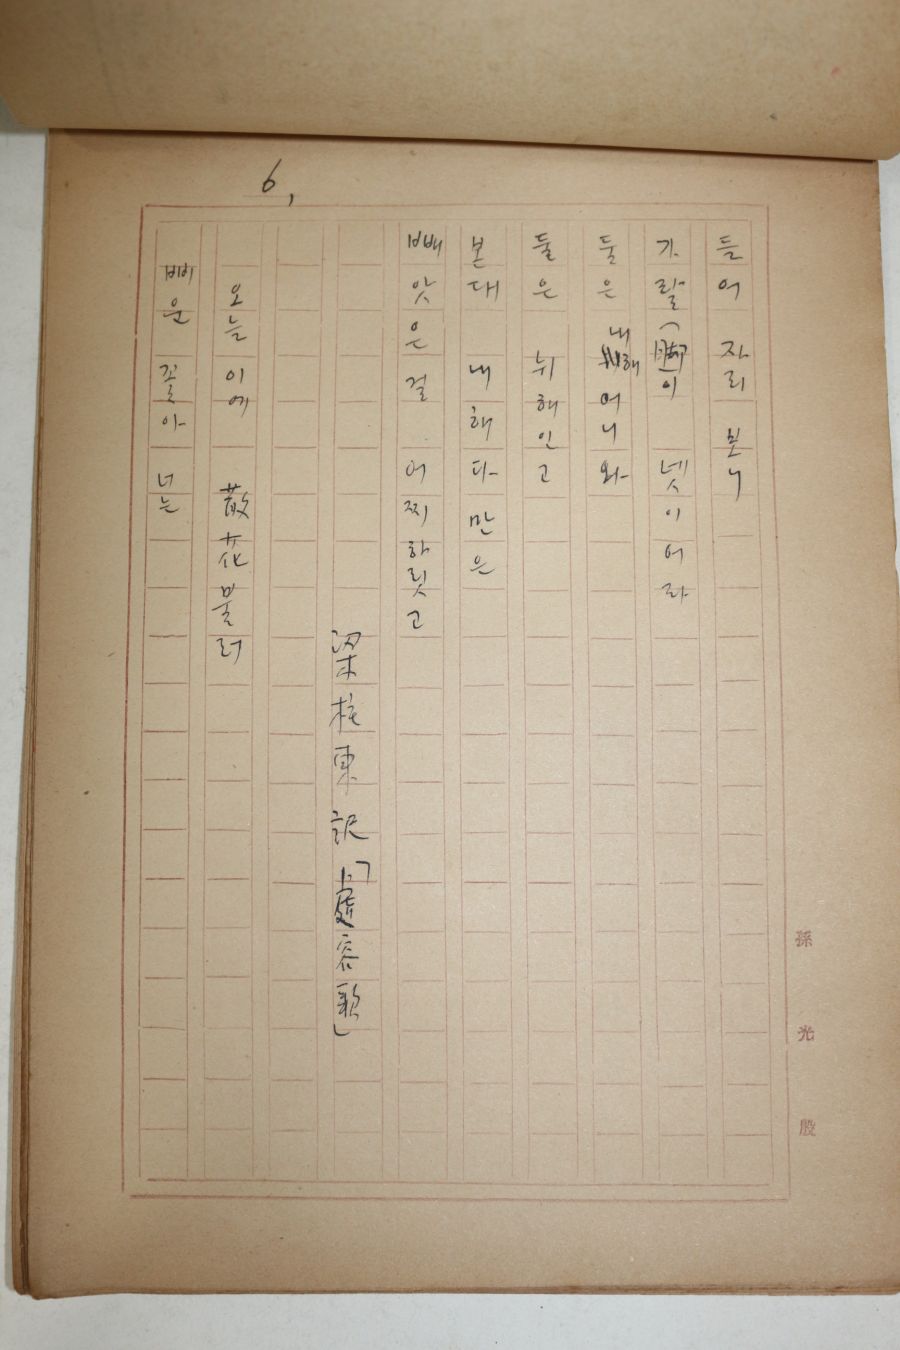 6,
들어 자리 보니
가랄(脚)이 넷이어라
둘은 내해어니와
둘은 뉘해인고
본대 내해다만은
빼앗은걸 어찌하릿고
梁柱東 訳「處容歌」
오늘이에 散花불러
삐운 꽃아 너는
孫光殷